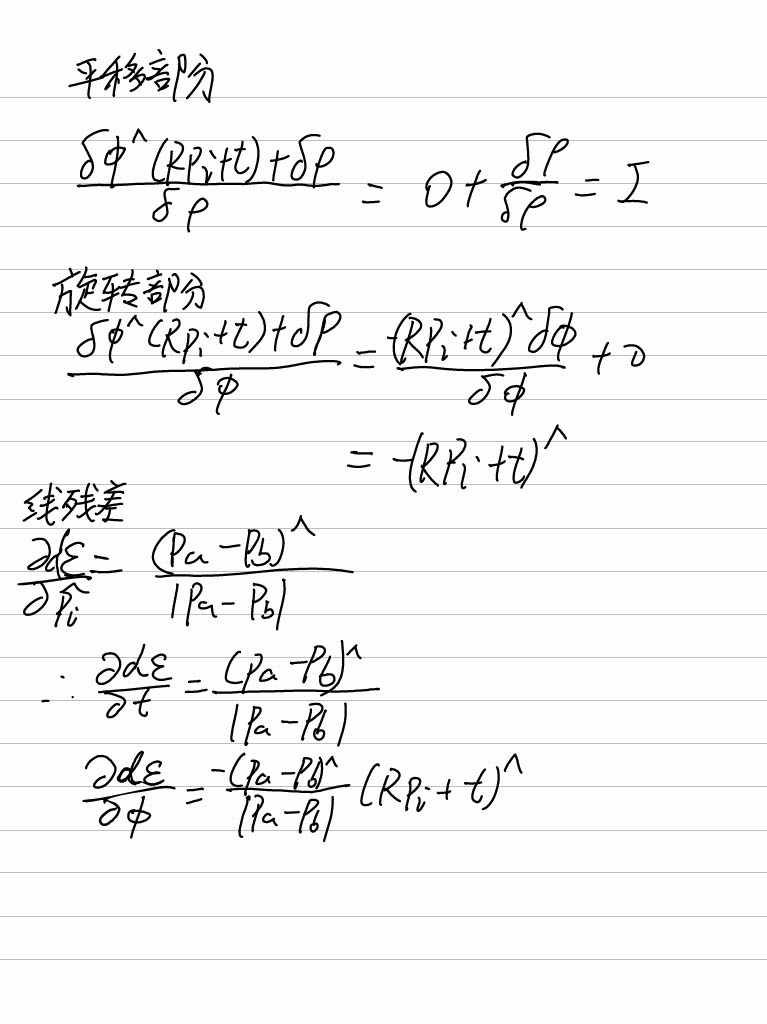 平移部分
δφ^(RPi+t)+δρ / δρ = 0 + δρ/δρ = I
旋转部分
δφ^(RPi+t)+δρ / δφ = -(RPi+t)^δφ / δφ + 0
= -(RPi+t)^
线残差
∂dε/∂P̂i = (Pa-Pb)^ / |Pa-Pb|
∴ ∂dε/∂t = (Pa-Pb)^ / |Pa-Pb|
∂dε/∂φ = -(Pa-Pb)^ / |Pa-Pb| (RPi+t)^